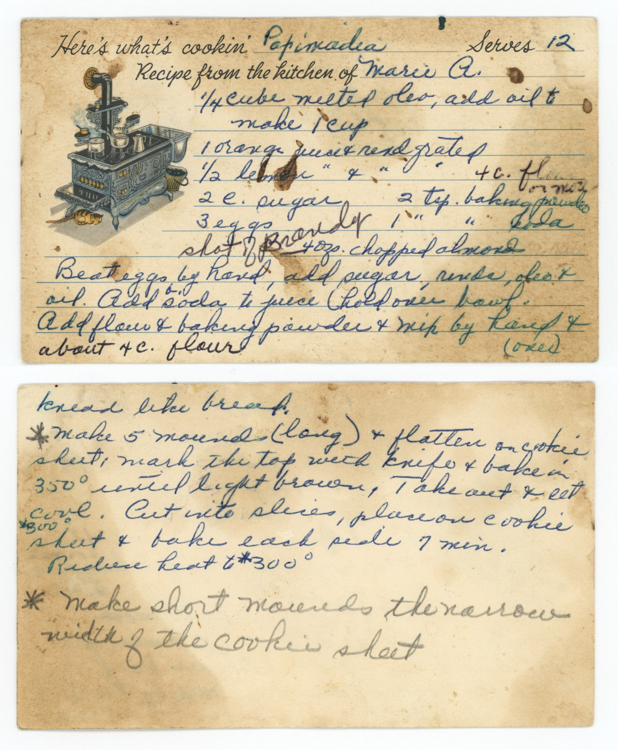 Here's what's cookin' Papimadia Serves 12
Recipe from the kitchen of Marie A.
1/4 cube melted oleo, add oil to
make 1 cup
1 orange juice & rind grated
1/2 lemon " & " " 4 c. flour
or more
2 c. sugar 2 tsp. baking powder
3 eggs 1 " " soda
shot of Brandy 4 oz. chopped almond
Beat eggs by hand, add sugar, rinds, oleo &
oil. Add soda to juice (hold over bowl.
Add flour & baking powder & mix by hand &
about 4 c. flour (over)
knead like bread.
* Make 5 mounds (long) & flatten on cookie
sheet, mark the top with knife & bake in
350° until light brown, Take out & let
cool. Cut into slices, place on cookie
*300°
sheet & bake each side 7 min.
Reduce heat to *300°
* Make short mounds the narrow
width of the cookie sheet